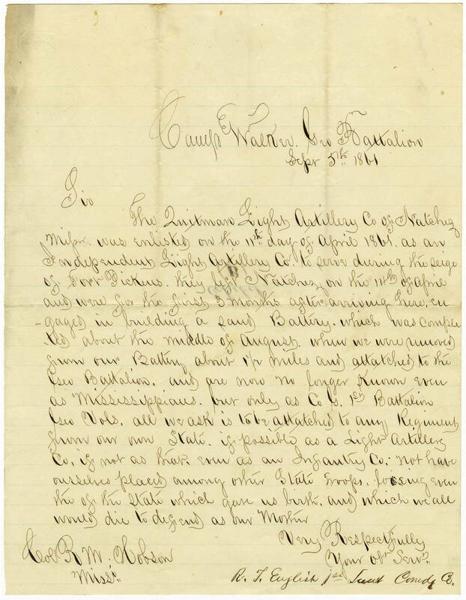 Camp Walker. Geo Battalion
Sept 5th 1861
Sir
The Quitman Light Artillery Co of Natchez
Missi. was enlisted on the 11th day of April 1861. as an
Independent Light Artillery Co to serve during the seige
of Fort Pickens. they Natchez on the 11th of April
and were for the first 3 months after arriving here, en
-gaged in building a sand Battery. which was comple
ted about the middle of August. when we were moved
from our Battery about 1½ miles and attatched to the
Geo Battalion. and are now no longer known even
as Mississippians. but only as Co 1st Battalion
Geo Vols. all we ask is to be attatched to any Regiment
from our own State. if possible as a Light Artillery
Co, if not as that, even as an Infantry Co; not have
ourselves placed among other State troops. losing even
the of the State which gave us birth. and which we all
would die to defend as our Mother
Very Respectfully
Your Obt Servt.
Col R. W. Hobson
Missi.
R. T. English 1st Lieut Comdg Co.